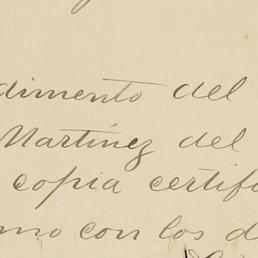 dimento del
Martinez del
copia certifi
mo con los d